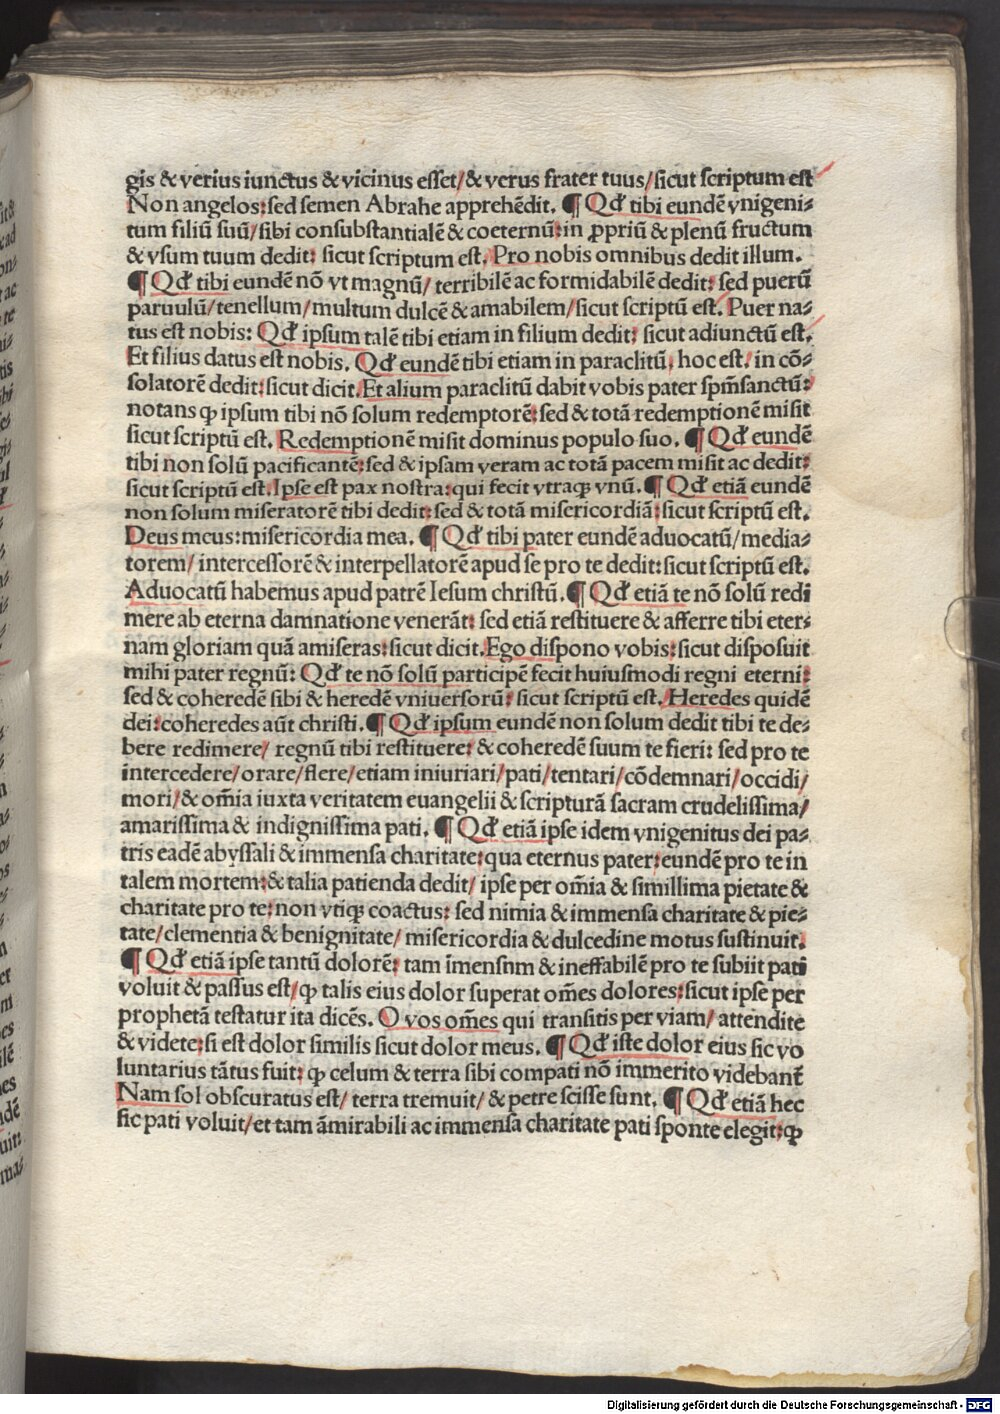 gis & verius iunctus & vicinus esset/& verus frater tuus/sicut scriptum est
Non angelos:sed semen Abrahe apprehēdit. ¶ Qđ tibi eundē vnigeni⸗
tum filiū suū/sibi consubstantialē & coeternū:in ꝓpriū & plenū fructum
& vsum tuum dedit: sicut scriptum est. Pro nobis omnibus dedit illum.
¶ Qđ tibi eundē nō vt magnū/ terribilē ac formidabilē dedit: sed puerū
paruulū/tenellum/multum dulcē & amabilem/sicut scriptū est. Puer na⸗
tus est nobis: Qđ ipsum talē tibi etiam in filium dedit: sicut adiunctū est.
Et filius datus est nobis. Qđ eundē tibi etiam in paraclitū, hoc est. in cō⸗
solatorē dedit:sicut dicit.Et alium paraclitū dabit vobis pater spm̄sanctū:
notans ꝙ ipsum tibi nō solum redemptorē:sed & totā redemptionē misit
sicut scriptū est. Redemptionē misit dominus populo suo. ¶ Qđ eundē
tibi non solū pacificantē:sed & ipsam veram ac totā pacem misit ac dedit:
sicut scriptū est.Ipse est pax nostra:qui fecit vtraqꝫ vnū.¶ Qđ etiā eundē
non solum miseratorē tibi dedit:sed & totā misericordiā:sicut scriptū est.
Deus meus:misericordia mea. ¶ Qđ tibi pater eundē aduocatū/media⸗
torem/ intercessorē & interpellatorē apud se pro te dedit:sicut scriptū est.
Aduocatū habemus apud patrē Iesum christū.¶ Qđ etiā te nō solū redi
mere ab eterna damnatione venerāt: sed etiā restituere & afferre tibi eter⸗
nam gloriam quā amiseras:sicut dicit.Ego dispono vobis:sicut disposuit
mihi pater regnū: Qđ te nō solū participēm fecit huiusmodi regni eterni:
sed & coheredē sibi & heredē vniuersorū: sicut scriptū est. Heredes quidē
dei:coheredes aūt christi.¶ Qđ ipsum eundē non solum dedit tibi te de⸗
bere redimere/ regnū tibi restituere: & coheredē suum te fieri: sed pro te
intercedere/orare/flere/etiam iniuriari/pati/tentari/cōdemnari/occidi/
mori/& om̄ia iuxta veritatem euangelii & scripturā sacram crudelissima/
amarissima & indignissima pati. ¶ Qđ etiā ipse idem vnigenitus dei pa⸗
tris eadē abyssali & immensa charitate:qua eternus pater:eundē pro te in
talem mortem:& talia patienda dedit/ ipse per om̄ia & simillima pietate &
charitate pro te:non vtiqꝫ coactus: sed nimia & immensa charitate & pie⸗
tate/clementia & benignitate/ misericordia & dulcedine motus sustinuit.
¶ Qđ etiā ipse tantū dolorē: tam īmensnm & ineffabilē pro te subiit pati
voluit & passus est/ꝙ talis eius dolor superat om̄es dolores:sicut ipse per
prophetā testatur ita dicēs. O vos om̄es qui transitis per viam/ attendite
& videte:si est dolor similis sicut dolor meus. ¶ Qđ iste dolor eius sic vo
luntarius tātus fuit: ꝙ celum & terra sibi compati nō immerito videbant̄
Nam sol obscuratus est/ terra tremuit/ & petre scisse sunt. ¶ Qđ etiā hec
sic pati voluit/et tam āmirabili ac immensa charitate pati sponte elegit:ꝙ
Digitalisierung gefördert durch die Deutsche Forschungsgemeinschaft - DFG